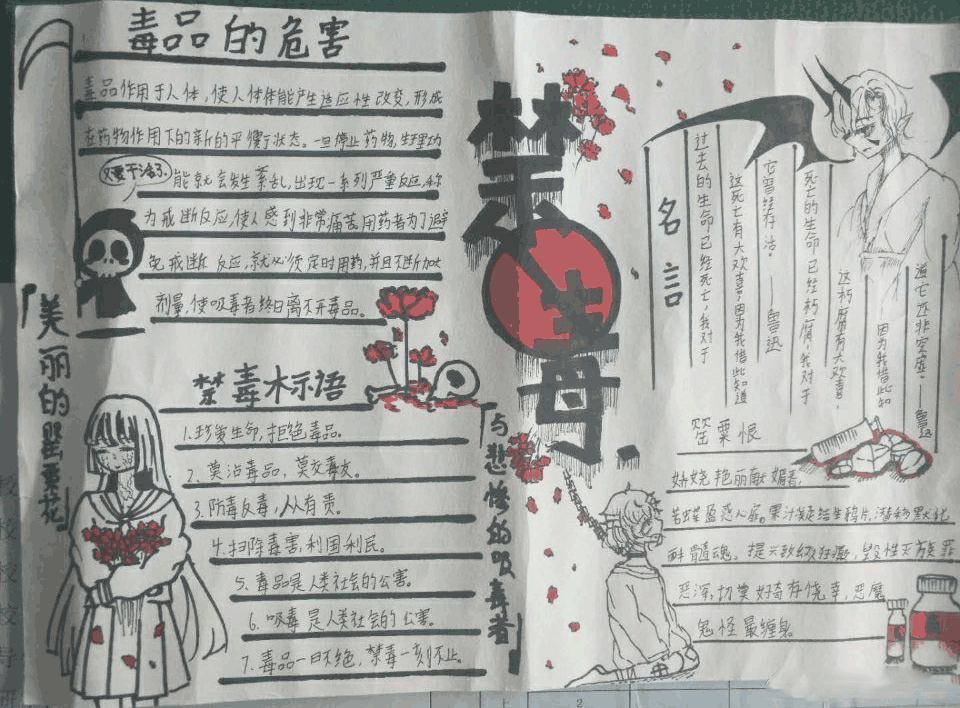 毒品的危害
毒品作用于人体,使人体体能产生适应性改变,形成
在药物作用下的新的平衡状态。一旦停止药物,生理功
能就会发生紊乱,出现一系列严重反应,称
为戒断反应,使人感到非常痛苦用药者为了避
免戒断反应,就必须定时用药,并且不断加大
剂量,使吸毒者终日离不开毒品。
「美丽的罂粟花」
禁毒标语
1.珍爱生命,拒绝毒品。
2.莫沾毒品,莫交毒友。
3.防毒反毒,人人有责。
4.扫除毒害,利国利民。
5.毒品是人类社会的公害。
6.吸毒是人类社会的公害。
7.毒品一日不绝,禁毒一刻不止。
「与悲惨的吸毒者」
禁毒.
名言
过去的生命已经死亡,我对于
这死亡有大欢喜,因为我借此知道
它曾经存活。——鲁迅
死亡的生命已经朽腐,我对于
这朽腐有大欢喜,
因为我借此知
道它还非空虚。——鲁迅
罂粟恨
妖娆艳丽献媚春,
果汁凝结生鸦片,潜移默化
蚀髓魂。提兴致级狂癫,毁性灭族罪
恶深,切莫好奇存侥幸,恶魔
鬼怪最缠身